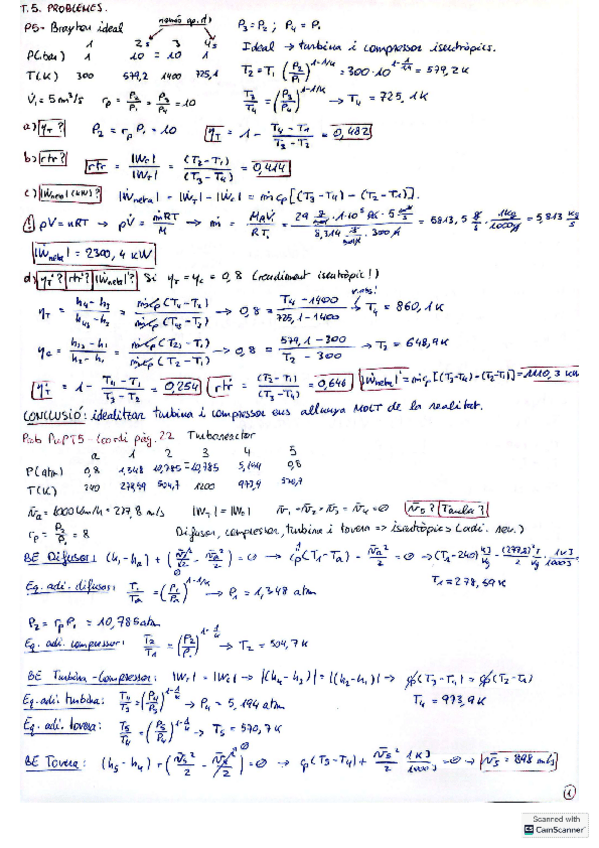 T.5. PROBLEMES.
P5- Brayton ideal només op. d) P3=P2 ; P4=P1
1 2s 3 4s Ideal → turbina i compressor isentròpics.
P(bar) 1 10 = 10 1 T2=T1(P2/P1)^1-1/k = 300·10^1-1/1,4 = 579,2K
T(K) 300 579,2 1400 725,1 T3/T4 = (P3/P4)^1-1/k → T4 = 725,1K
V̇1 = 5m³/s rp = P2/P1 = P3/P4 = 10
a) ηT? P2 = rp P1 = 10 ηT = 1 - (T4-T1)/(T3-T2) = 0,482
b) rtr? rtr = |Wc|/|WT| = (T2-T1)/(T3-T4) = 0,414
c) |Ẇneta|(kW)? |Ẇneta| = |ẆT| - |Ẇc| = ṁcp[(T3-T4) - (T2-T1)].
! pV = nRT → pV̇ = ṁRT/M → ṁ = MP1V̇1/RT1 = 5,813 kg/s
|Ẇneta| = 2300,4 kW
d) ηT'? rtr'? |Ẇneta|'? Si ηT = ηc = 0,8 (rendiment isentròpic!)
ηT = (h4-h3)/(h4s-h3) = ṁcp(T4-T3)/ṁcp(T4s-T3) → 0,8 = (T4-1400)/(725,1-1400) → T4 = 860,1K
ηc = (h2s-h1)/(h2-h1) = ṁcp(T2s-T1)/ṁcp(T2-T1) → 0,8 = (579,1-300)/(T2-300) → T2 = 648,9K
ηT' = 1 - (T4-T1)/(T3-T2) = 0,254 rtr' = (T2-T1)/(T3-T4) = 0,646 |Ẇneta|' = ṁcp[(T3-T4)-(T2-T1)] = 1110,3 kW
CONCLUSIÓ: idealitzar turbina i compressor ens allunya MOLT de la realitat.
pàg. 22 Turboreactor
a 1 2 3 4 5
P(atm) 0,8 1,348 10,785 = 10,785 5,194 0,8
T(K) 240 278,59 504,7 1200 973,9 570,7
v̄a = 1000 km/h = 277,8 m/s |WT| = |Wc| v̄1 = v̄2 = v̄3 = v̄4 = 0 v̄5? Taula?
rp = P2/P1 = 8 Difusor, compressor, turbina i tovera => isentròpics (adi. rev.)
BE Difusor: (h1-ha) + (v̄1²/2 - v̄a²/2) = 0 → cp(T1-Ta) - v̄a²/2 = 0 → (T1-240) kJ/kg - (277,8)²/2 J/kg · 1KJ/1000J
T1 = 278,59K
Eq. adi. difusor: T1/Ta = (P1/Pa)^1-1/k → P1 = 1,348 atm
P2 = rp P1 = 10,785 atm
Eq. adi. compressor: T2/T1 = (P2/P1)^1-1/k → T2 = 504,7K
BE Turbina-Compressor: |WT| = |Wc| → |(h4-h3)| = |(h2-h1)| → cp(T3-T4) = cp(T2-T1)
T4 = 973,9K
Eq. adi. turbina: T4/T3 = (P4/P3)^1-1/k → P4 = 5,194 atm
Eq. adi. tovera: T5/T4 = (P5/P4)^1-1/k → T5 = 570,7K
BE Tovera: (h5-h4) + (v̄5²/2 - v̄4²/2) = 0 → cp(T5-T4) + v̄5²/2 · 1KJ/1000J = 0 → v̄5 = 898 m/s
1
Scanned with
CS CamScanner